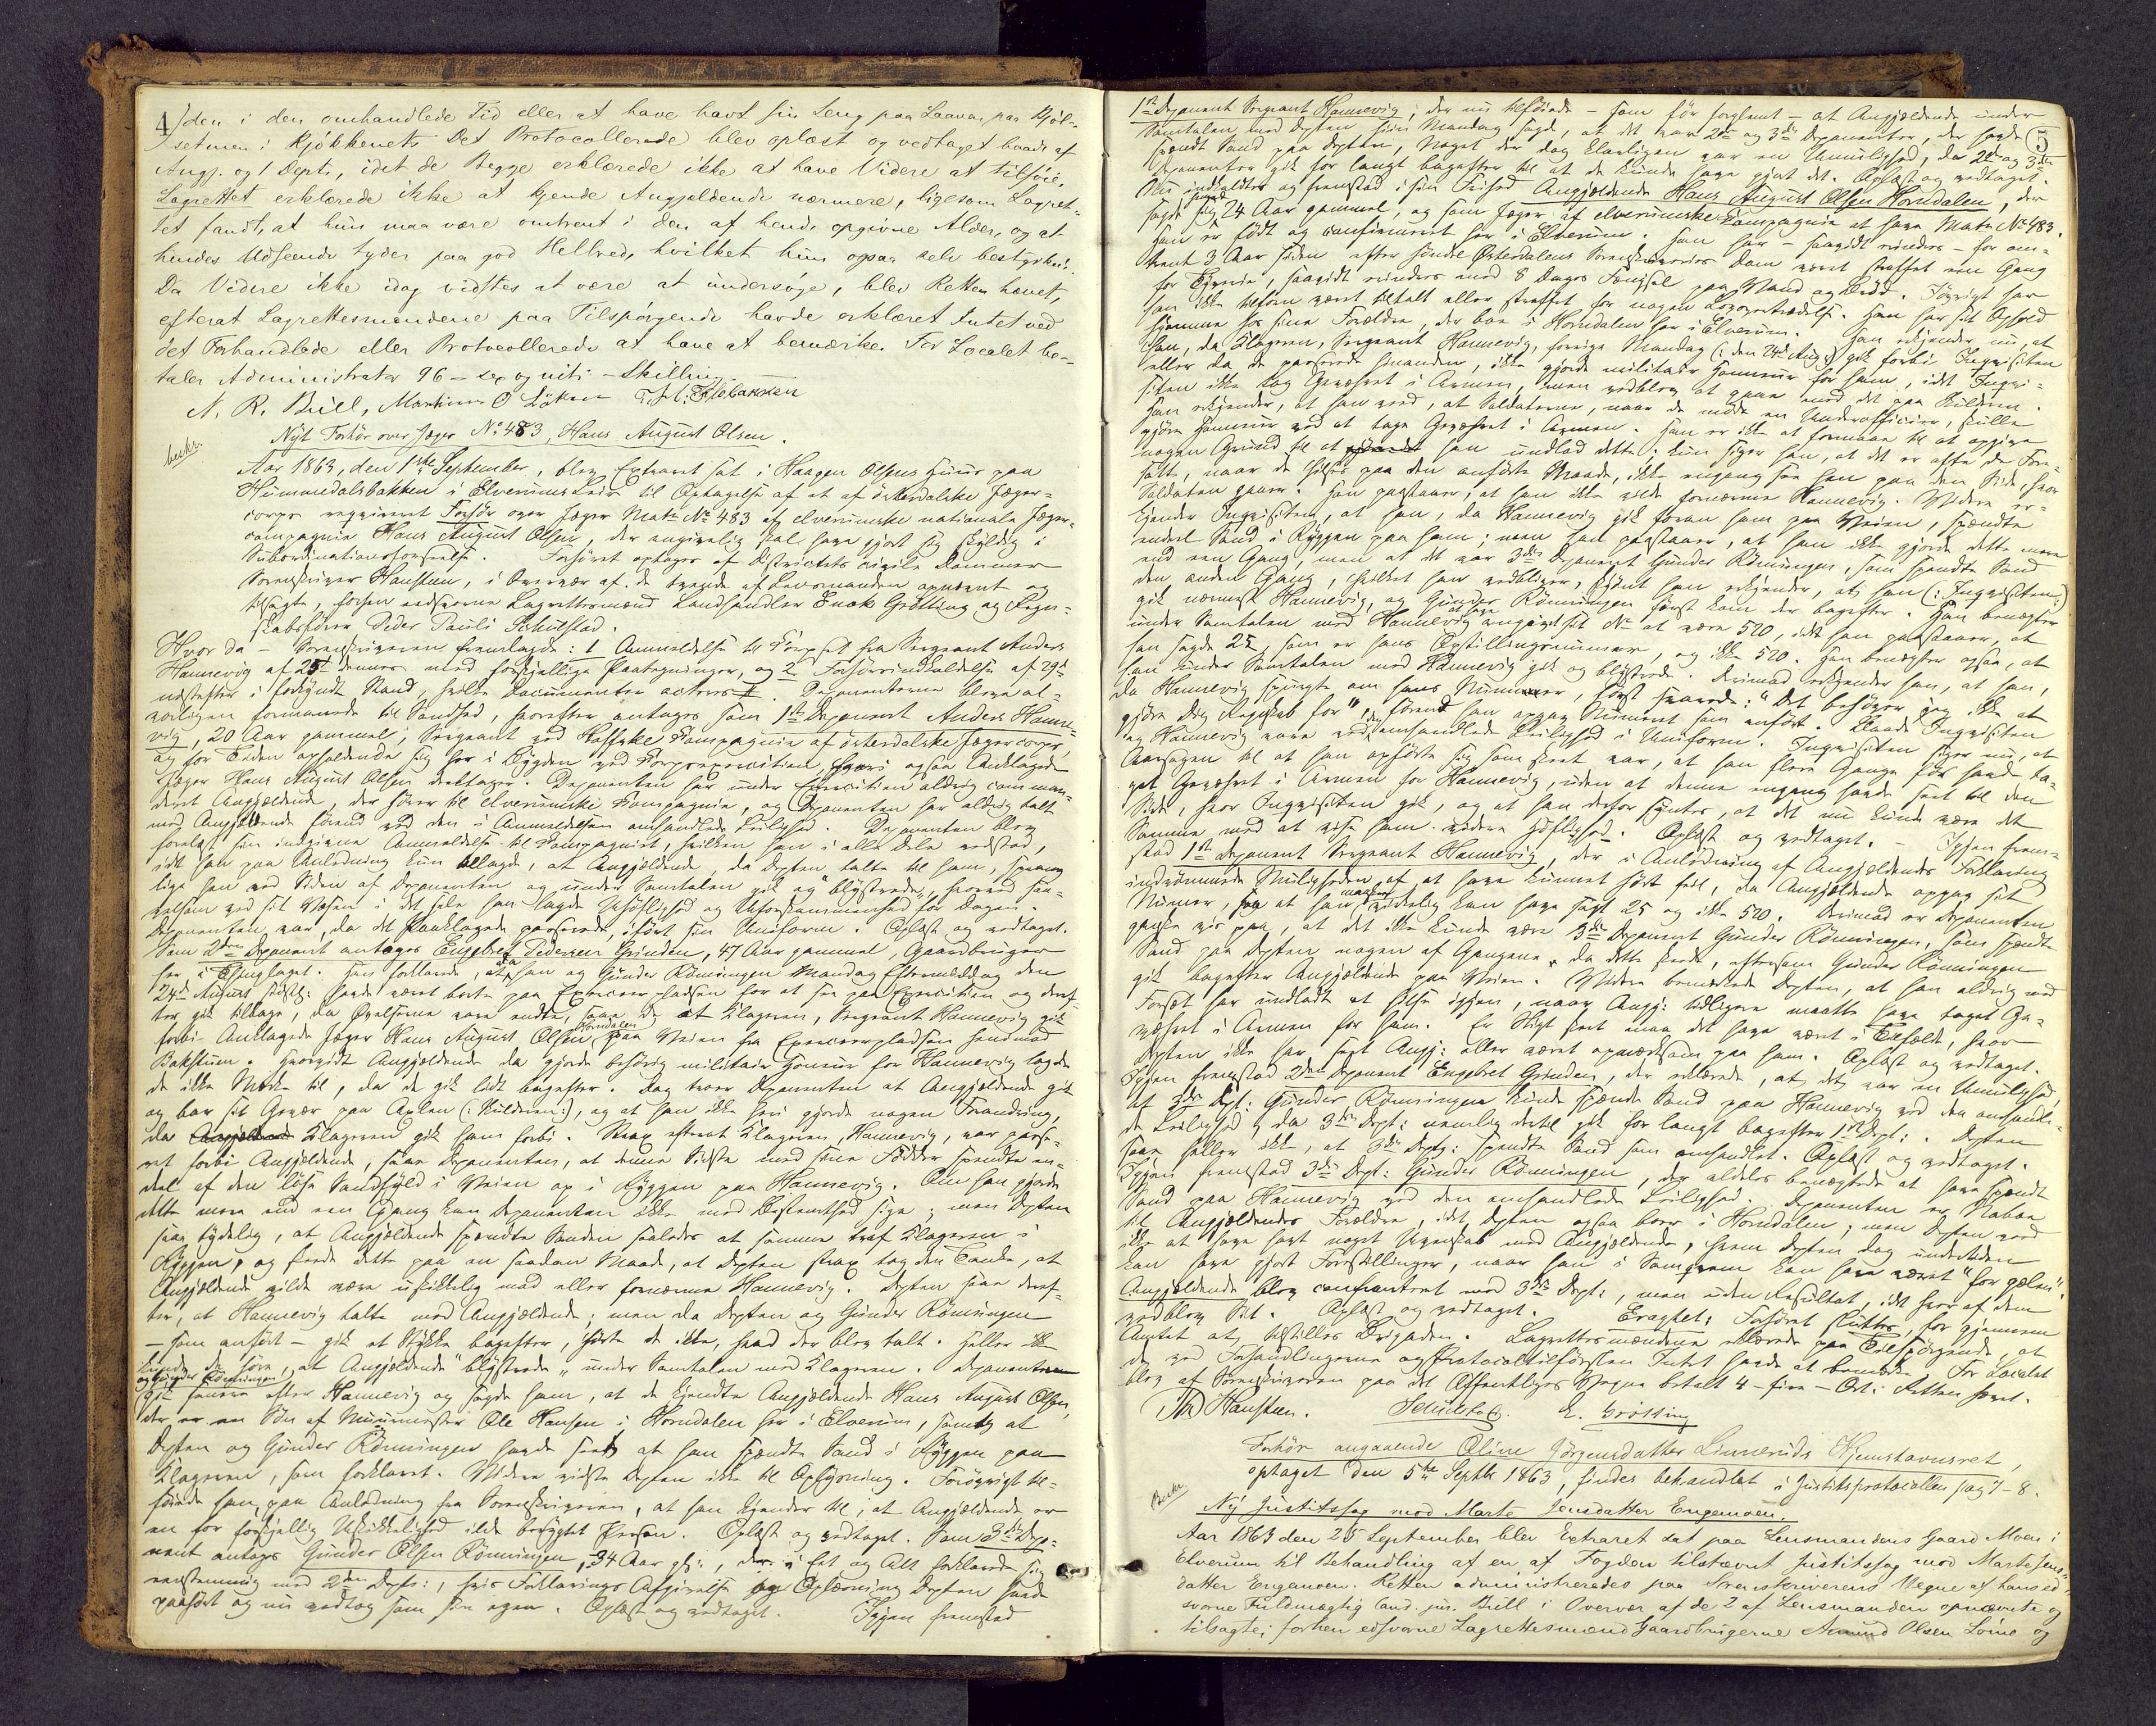 4)
den i den omhandlede Tid eller at have havt sin Seng paa Laaven paa Kjøl-
setmen i Kjøkkenet. Det Protocollerede blev oplæst og vedtaget baade af
Angj. og 1 Dept., idet de Begge erklærede ikke at have Videre at tilföie.
Lagrettet erklærede ikke at kjende Angjældende nærmere, ligesom Lagret-
tet fandt, at hun maa være omtrent i den af hende opgivne Alder, og at
hendes Udseende tyder paa god Helbred, hvilket hun ogsaa selv bestyrkede.
Da Videre ikke idag vidstes at være at undersøge, blev Retten hævet,
efterat Lagrettesmændene paa Tilspörgende havde erklæret Intet ved
det Forhandlede eller Protocollerede at have at bemærke. For Localet be-
taler Administrator 96 - sex og niti - Skilling
N. R. Bull, Martinus O Löken
beskr.
Nyt Forhör over Jæger No 483, Hans August Olsen.
Aar 1863, den 1ste September, blev Extraret sat i Haagen Olsens Huus paa
Hummedalsbakken i Elverums Leir til Optagelse af et af österdalske Jæger-
corps requireret Forhör over Jæger Matr. No 483 af elverumske nationale Jæger-
compagnie Hans August Olsen, der angivelig skal have gjort sig skyldig i
Subordinationsforseelse. Forhöret optages af Districtets civile Dommer
Sorenskriver Hansteen, i Overvær af de tvende af Lensmanden opnævnte og
tilsagte, forhen edsvorne Lagrettesmænd Landhandler Enok Grötting og Regn-
skabsförer Peder Pauli Schulstad.
Hvor da - Sorenskriveren fremlagde: 1 Anmeldelse til Corpset fra Sergeant Anders
Hannevig af 25d dennes med forskjellige Paategninger, og 2 Forhørsindkaldelse af 29d
næstefter i forkyndt Stand, hvilke Documenter acteres #. Deponenterne bleve al-
vorligen formanede til Sandhed, hvorefter antages som 1ste Deponent Anders Hanne-
vig, 20 Aar gammel, Sergeant ved Hoffske Compagnie af österdalske Jægercorps,
og for Tiden opholdende sig her i Bygden ved Corpsexercitien, hvori ogsaa Anklagede
Jæger Hans August Olsen deeltager. Deponenten har under Exercitien aldrig comman-
deret Angjældende, der hörer til elverumske Compagnie, og Deponenten har aldrig talt
med Angjældende förend ved den i Anmeldelsen omhandlede Leilighed. Deponenten blev
forelæst sin indgivne Anmeldelse til Compagniet, hvilken han i alle Dele vedstod,
idet han paa Anledning kun tillagde, at Angjældende, da Depten talte til ham, sprang
lige hen ved Siden af Deponenten og under Samtalen gik og "blystrede", hvorved han-
velsom ved sit Væsen i det hele han lagde Uhöflighed og Uforskammenhed for Dagen.
Deponenten var, da det Paaklagede passerede, iført sin Uniform. Oplæst og vedtaget.
Som 2den Deponent antages Engebret Pedersen Grinden, 47 Aar gammel, Gaardbruger
her i Thinglaget. Han forklarede, at da han og Gunder Rönningen Mandag Eftermiddag den
24de August sidstl. havde været borte paa Exerceerpladsen for at see paa Exercitien og deref-
ter gik tilbage, da Övelserne vare endte, saae de at Klageren, Sergeant Hannevig gik
forbi Anklagede Jæger Hans August Olsen Horndalen paa Veien fra Exerceerpladsen henimod
Bakstuen. Hvorvidt Angjældende da gjorde behörig militair Honneur for Hannevig lagde
de ikke Mærke til, da de gik lidt bagefter. Dog troer Deponenten at Angjældende gik
og bar sit Gevær paa Axlen (: Kulderen:), og at han ikke heri gjorde nogen Forandring,
da Klageren gik ham forbi. Strax efterat Klageren, Hannevig, var passe-
ret forbi Angjældende, saae Deponenten, at denne Sidste med sine Födder spændte en-
deel af den löse Sandfyld i Veien op i Ryggen paa Hannevig. Om han gjorde
dette mere end een Gang kan Deponenten ikke med Bestemthed sige; men Depten
saae tydelig, at Angjældende spændte Sanden saaledes at samme traf Klageren i
Ryggen, og skeede dette paa en saadan Maade, at Depten strax tog den Tanke, at
Angjældende vilde være uskikkelig mod eller fornærme Hannevig. Depten saae deref-
ter, at Hannevig talte med Angjældende; men da Depten og Gunder Rönningen
- som anfört - gik et Stykke bagefter, hörte de ikke, hvad der blev talt. Heller ikke
kunde de höre, at Angjældende "blystrede" under Samtalen med Klageren. Deponenten
og Gunder Rönningen
gik senere efter Hannevig og sagde ham, at de kjendte Angjældende Hans August Olsen,
der er en Sön af Muurmester Ole Hansen i Horndalen her i Elverum, samt at
Depten og Gunder Rönningen havde seet, at han spændte Sand i Ryggen paa
Klageren, som forklaret. Videre vidste Depten ikke til Oplysning. Forövrigt til-
föiede han, paa Anledning fra Sorenskriveren, at han kjender til, at Angjældende er
en for forskjellig Uskikkelighed ilde berygtet Person. Oplæst og vedtaget. Som 3die Depo-
nent antages Gunder Olsen Rönningen, 34 Aar gl:, der i Et og Alt forklarede sig
eenstemmig med 2den Dept:, hvis Forklarings Afgivelse og Oplæsning Depten havde
paahört og nu vedtog som sin egen. Oplæst og vedtaget. Igjen fremstod
5
1ste Deponent Sergeant Hannevig, der nu tilföiede - som för forglemt - at Angjældende under
Samtalen med Depten hiin Mandag sagde, at det var 2den og 3die Deponenter, der havde
spændt Sand paa Depten, Noget der dog klarligen var en Umulighed, da 2den og 3die
Deponenter gik for langt bagefter til at de kunde have gjort det. Oplæst og vedtaget.
Blev indkaldt og fremstod i sin Frihed Angjældende Hans August Olsen Horndalen, der
sagde sig 24 Aar gammel, og som Jæger af elverumske Compagnie at have Matr. No 483.
Han er född og confirmeret her i Elverum. Han har - saavidt erindres - for om-
trent 3 Aar siden efter söndre Österdalens Sorenskriveries Dom været straffet een Gang
for Tyverie, saavidt erindres med 8 Dages Fængsel paa Vand og Bröd. Forövrigt har
han ikke tilforn været tiltalt eller straffet for nogen Lovovertrædelse. Han har sit Ophold
hjemme hos sine Forældre, der boe i Horndalen her i Elverum. Han erkjender nu, at
han, da Klageren, Sergeant Hannevig, forrige Mandag (: den 24de Aug:) gik forbi Inqvisiten
eller da de passerede hinanden, ikke gjorde militair Honneur for ham, idet Inqvi-
siten ikke tog Geværet i Armen, men vedblev at gaae med det paa Kulderen.
Han erkjender, at han veed, at Soldaterne, naar de möde en Underofficier, skulle
gjöre Honneur ved at tage Geværet i Armen. Han er ikke at formaae til at opgive
nogen Grund til at han undlod dette; kun siger han, at det er ofte de Fore-
satte, naar de hilses paa den anförte Maade, ikke engang see hen paa den Side, hvor
Soldaten gaaer. Han paastaaer, at han ikke vilde fornærme Hannevig. Videre er-
kjender Inqvisiten, at han, da Hannevig gik foran ham paa Veien, spændte
endeel Sand i Ryggen paa ham; men han paastaaer, at han ikke gjorde dette mere
end een Gang, men at det var 3die Deponent Gunder Rönningen, som spændte Sand
den anden Gang, hvilket han vedbliver, skjönt han erkjender, at han (: Inqvisiten:)
gik nærmest Hannevig, og Gunder Rönningen først kom der bagefter. Han benægter
under Samtalen med Hannevig at have angivet sit No at være 520, idet han paastaaer, at
han sagde 25, som er hans Opstillingsnummer, og ikke 520. Han benægter ogsaa, at
han under Samtalen med Hannevig gik og blystrede. Derimod erkjender han, at han,
da Hannevig spurgte om hans Nummer, först svarede: "Det behöver jeg ikke at
gjöre Dig Regnskab for", förend han opgav Nummeret som anfört. Baade Inqvisiten
og Hannevig vare ved den omhandlede Leilighed i Uniform. Inqvisiten siger nu, at
Aarsagen til at han opförte sig som skeet var, at han flere Gange för havde ta-
get Geværet i Armen for Hannevig, uden at denne engang havde seet til den
Side, hvor Inqvisiten gik, og at han derfor syntes, at det nu kunde være det
Samme med at vise ham videre Höflighed. Oplæst og vedtaget. - Igjen frem-
stod 1ste Deponent Sergeant Hannevig, der i Anledning af Angjældendes Forklaring
indrømmede Muligheden af at have kunnet hört feil, da Angjældende opgav sit
Numer, saa at han maaskee virkelig kan have sagt 25 og ikke 520. Derimod er Deponenten
ganske vis paa, at det ikke kunde være 3die Deponent Gunder Rönningen, som spændte
Sand paa Depten nogen af Gangene, da dette skede, eftersom Gunder Rönningen
gik bagefter Angjældende paa Veien. Videre bemærkede Depten, at han aldrig med
Forsæt har undladt at hilse igjen, naar Angj: tidligere maatte have taget Ge-
væhret i Armen for ham. Er Sligt skeet maa det have været i Tilfælde, hvor
Depten ikke har seet Angj: eller været opmærksom paa ham. Oplæst og vedtaget.
Igjen fremstod 2den Deponent Engebret Grinden, der erklærede, at det var en Umulighed,
at 3die Dept: Gunder Rönningen kunde spænde Sand paa Hannevig ved den omhand-
lede Leilighed, da 3die Dept: nemlig dertil gik for langt bagefter 1ste Dept:. Depten
saae heller ikke, at 3die Dept: spendte Sand som omhandlet. Oplæst og vedtaget.
Igjen fremstod 3die Dept: Gunder Rönningen, der aldeles benægtede at have spændt
Sand paa Hannevig ved den omhandlede Leilighed. Deponenten er Naboe
til Angjældendes Forældre, idet Depten ogsaa boer i Horndalen; men Depten veed
ikke at have havt noget Uvenskab med Angjældende, hvem Depten dog undertiden
kan have gjort Forestillinger, naar han i Samqvem kan have været "for galen".
Angjældende blev confronteret med 3die Dept:, men uden Resultat, idet hver af dem
vedblev Sit. Oplæst og vedtaget. Eragtet: Forhöret sluttes, for gjennem
Amtet at tilstilles Brigaden. Lagrettesmændene erklærede paa Tilspörgende, at
de ved Forhandlingerne og Protocoltilførselen Intet havde at bemærke. For Localet
blev af Sorenskriveren paa det Offentliges Vegne betalt 4 - fire - Ort. Retten hævet.
Th Hansteen. Schulstad. E. Grötting
Forhör angaaende Oline Jörgensdatter Linneruds Hjemstavnsret,
optaget den 5te Septbr 1863, findes behandlet i Justitsprotocollen pag 7-8.
Beskr.
Ny Justitssag mod Marte Jensdatter Engemoen.
Aar 1863 den 25 September blev Extraret sat paa Lensmandens Gaard Moen i
Elverum til Behandling af en af Fogden tilstævnt Justitssag mod Marte Jens-
datter Engemoen. Retten administreredes paa Sorenskriverens Vegne af hans ed-
svorne Fuldmægtig Cand. jur. Bull i Overvær af de 2 af Lensmanden opnævnte og
tilsagte, forhen edsvorne Lagrettesmænd Gaardbrugerne Amund Olsen Lömo og